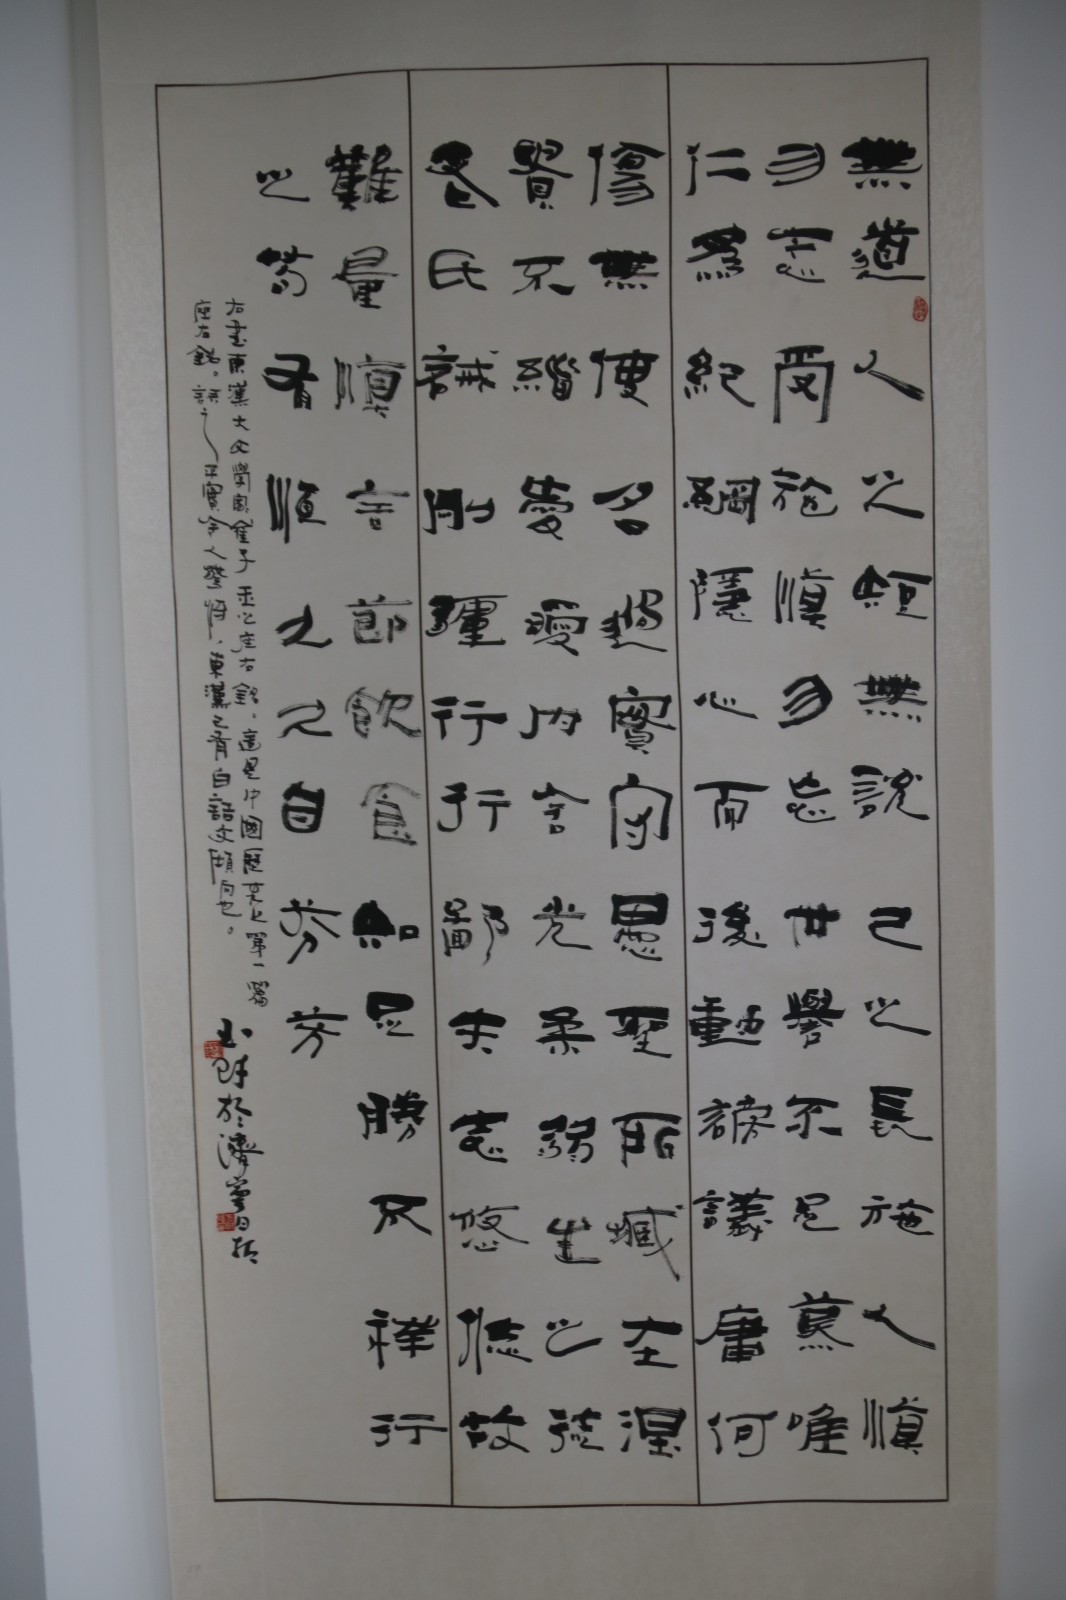 無道人之短無說己之長施人慎
勿志受施慎勿忘世譽不足慕唯
仁為紀綱隱心而後動謗議庸何
傷無使名過實守愚聖所臧在涅
賢不緇曖曖內含光柔弱生之徒
老氏誡剛彊行行鄙夫志悠悠故
難量慎言節飲食知足勝不祥行
之苟有恆久久自芬芳
右書東漢大文學家崔子玉之座右銘，這是中國歷史上第一篇
座右銘。讀之平實令人警悟，東漢已有白話文傾向也。
於濟寧